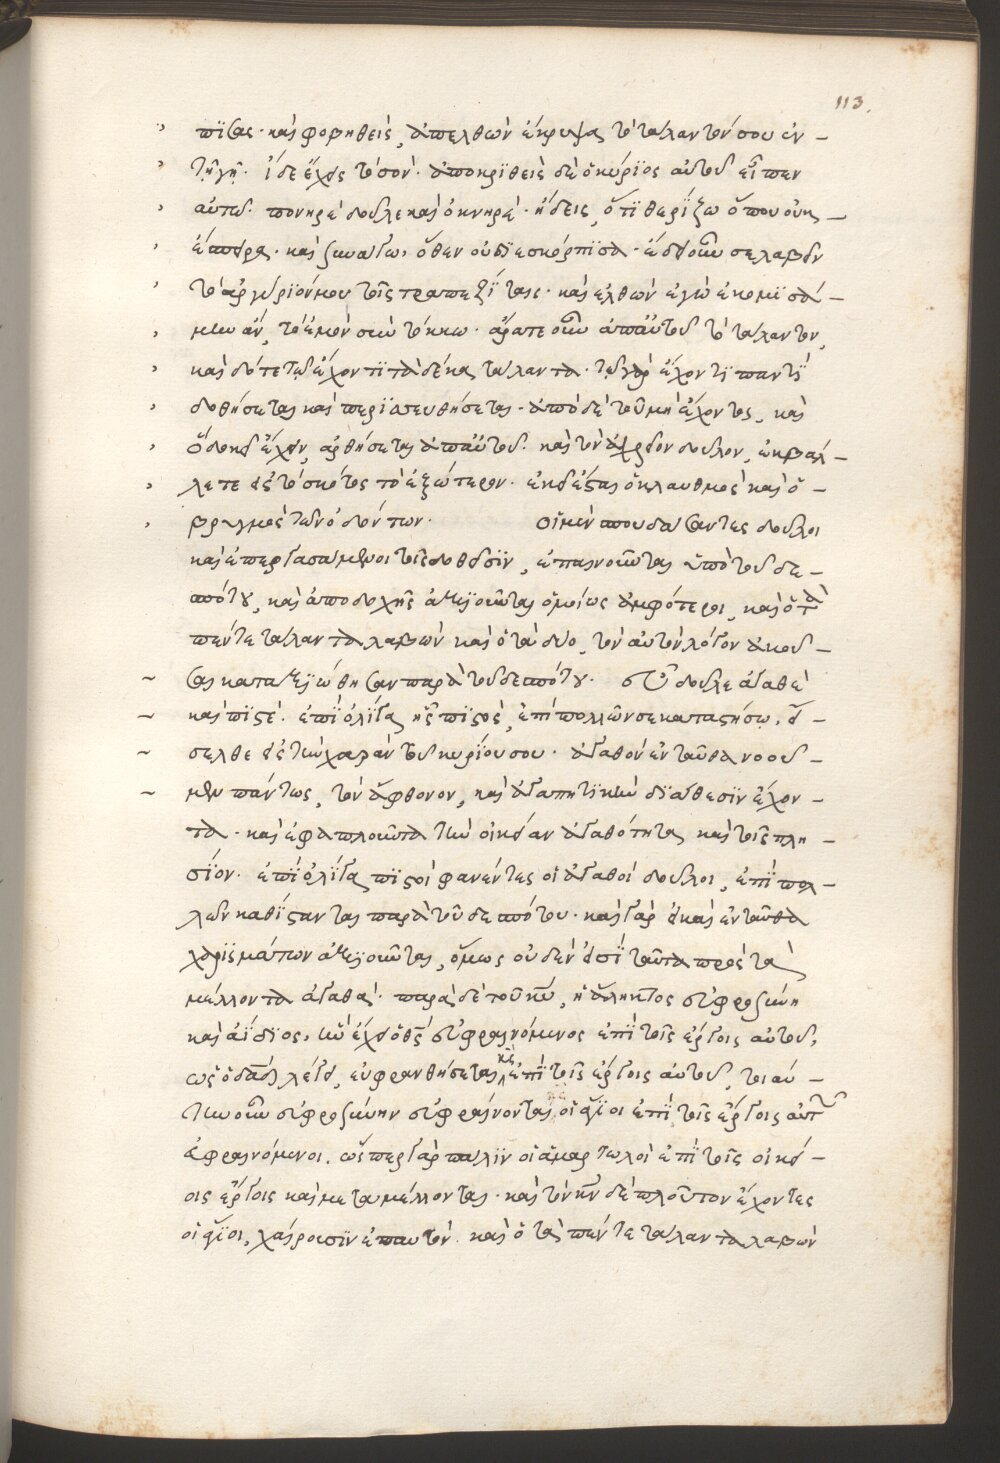 113.
πϊσας· καὶ φοβηθεὶς, ἀπελθὼν ἔκρυψα τὸ τάλαντόν σου ἐν –
τῇ γῇ. ἴδε ἔχεις τὸ σόν· ἀποκρϊθεὶς δὲ ὁ κύρϊος αὐτοῦ εἶπεν
αὐτῷ· πονηρὲ δοῦλε καὶ ὀκνηρὲ· ἤδεις, ὅτϊ θερΐζω ὅπου οὐκ –
ἔσπειρα· καὶ συνάγω, ὅθεν οὐ δϊεσκόρπϊσα· ἔδει οὖν σε λαβεῖν
τὸ ἀργύρϊόν μου τοῖς τραπεζΐταις· καὶ ἐλθὼν ἐγὼ ἐκομϊσά –
μην ἄν, τὸ ἐμὸν σὺν τόκω· ἄρατε οὖν ἀπ' αὐτοῦ τὸ τάλαντον,
καὶ δότε τῷ ἔχοντϊ τὰ δέκα τάλαντα· τῷ γὰρ ἔχοντϊ παντῒ
δοθήσεται καὶ περϊσσευθήσεται· ἀπὸ δὲ τοῦ μὴ ἔχοντος, καὶ
ὃ δοκεῖ ἔχειν, ἀρθήσεται ἀπ' αὐτοῦ. καὶ τὸν ἀχρεῖον δοῦλον, ἐκβάλ –
λετε εἰς τὸ σκότος τὸ ἐξώτερον· ἐκεῖ ἔσται ὁ κλαυθμὸς καὶ ὁ –
βρυγμὸς τῶν ὀδόντων· οἱ μὲν σπουδάσαντες δοῦλοι
καὶ ἐπεργασάμενοι τοῖς δοθεῖσϊν, ἐπαινοῦνται ὑπὸ τοῦ δε –
σπότου, καὶ ἀποδοχῆς ἀξϊοῦνται ὁμοίως ἀμφότεροι, καὶ ὁ τὰ
πέντε τάλαντα λαβὼν καὶ ὁ τὰ δύο, τὸν αὐτὸν λόγον ἀκοῦ –
σαι κατηξϊώθησαν παρὰ τοῦ δεσπότου· εὖ δοῦλε ἀγαθὲ
καὶ πϊστέ. ἐπῒ ὀλΐγα ἦς πϊστός, ἐπὶ πολλῶν σε καταστήσω, εἴ –
σελθε εἰς τὴν χαρὰν τοῦ κυρίου σου· ἀγαθὸν ἐνταῦθα νοοῦ –
μεν πάντως, τὸν ἄφθονον, καὶ ἀγαπητϊκὴν δϊάθεσϊν ἔχον –
τα· καὶ ἐφαπλοῦντα τὴν οἰκείαν ἀγαθότητα καὶ τοῖς πλη –
σΐον· ἐπῒ ὀλΐγα πϊστοὶ φανέντες οἱ ἀγαθοὶ δοῦλοι, ἐπῒ πολ –
λῶν καθΐστανται παρὰ τοῦ δεσπότου· καὶ γὰρ εἰ καὶ ἐνταῦθα
χαρϊσμάτων ἀξϊοῦνται, ὅμως οὐδέν εἰσϊ ταῦτα πρὸς τὰ
μέλλοντα ἀγαθά· χαρὰ δὲ τοῦ κυ, ἡ ἄληκτος εὐφροσύνη
καὶ ἀΐδϊος, ἣν ἔχει ὁ θς εὐφραινόμενος ἐπῒ τοῖς ἔργοις αὐτοῦ,
ὡς ὁ δαδ λέγει, εὐφρανθήσεται κς ἐπῒ τοῖς ἔργοις αὐτοῦ, τοιαύ –
την οὖν εὐφροσύνην εὐφραίνονται οἱ ἅγϊοι ἐπῒ τοῖς ἔργοις αὐτῶν
εὐφραινόμενοι. ὥσπερ γὰρ πάλϊν οἱ ἁμαρτωλοὶ ἐπῒ τοῖς οἰκεί –
οις ἔργοις καὶ μεταμέλλονται· καὶ τὸν κν δὲ πλοῦτον ἔχοντες
οἱ ἅγϊοι, χαίρουσϊν ἐπ' αυτόν· καὶ ὁ τὰ πέντε τάλαντα λαβὼν